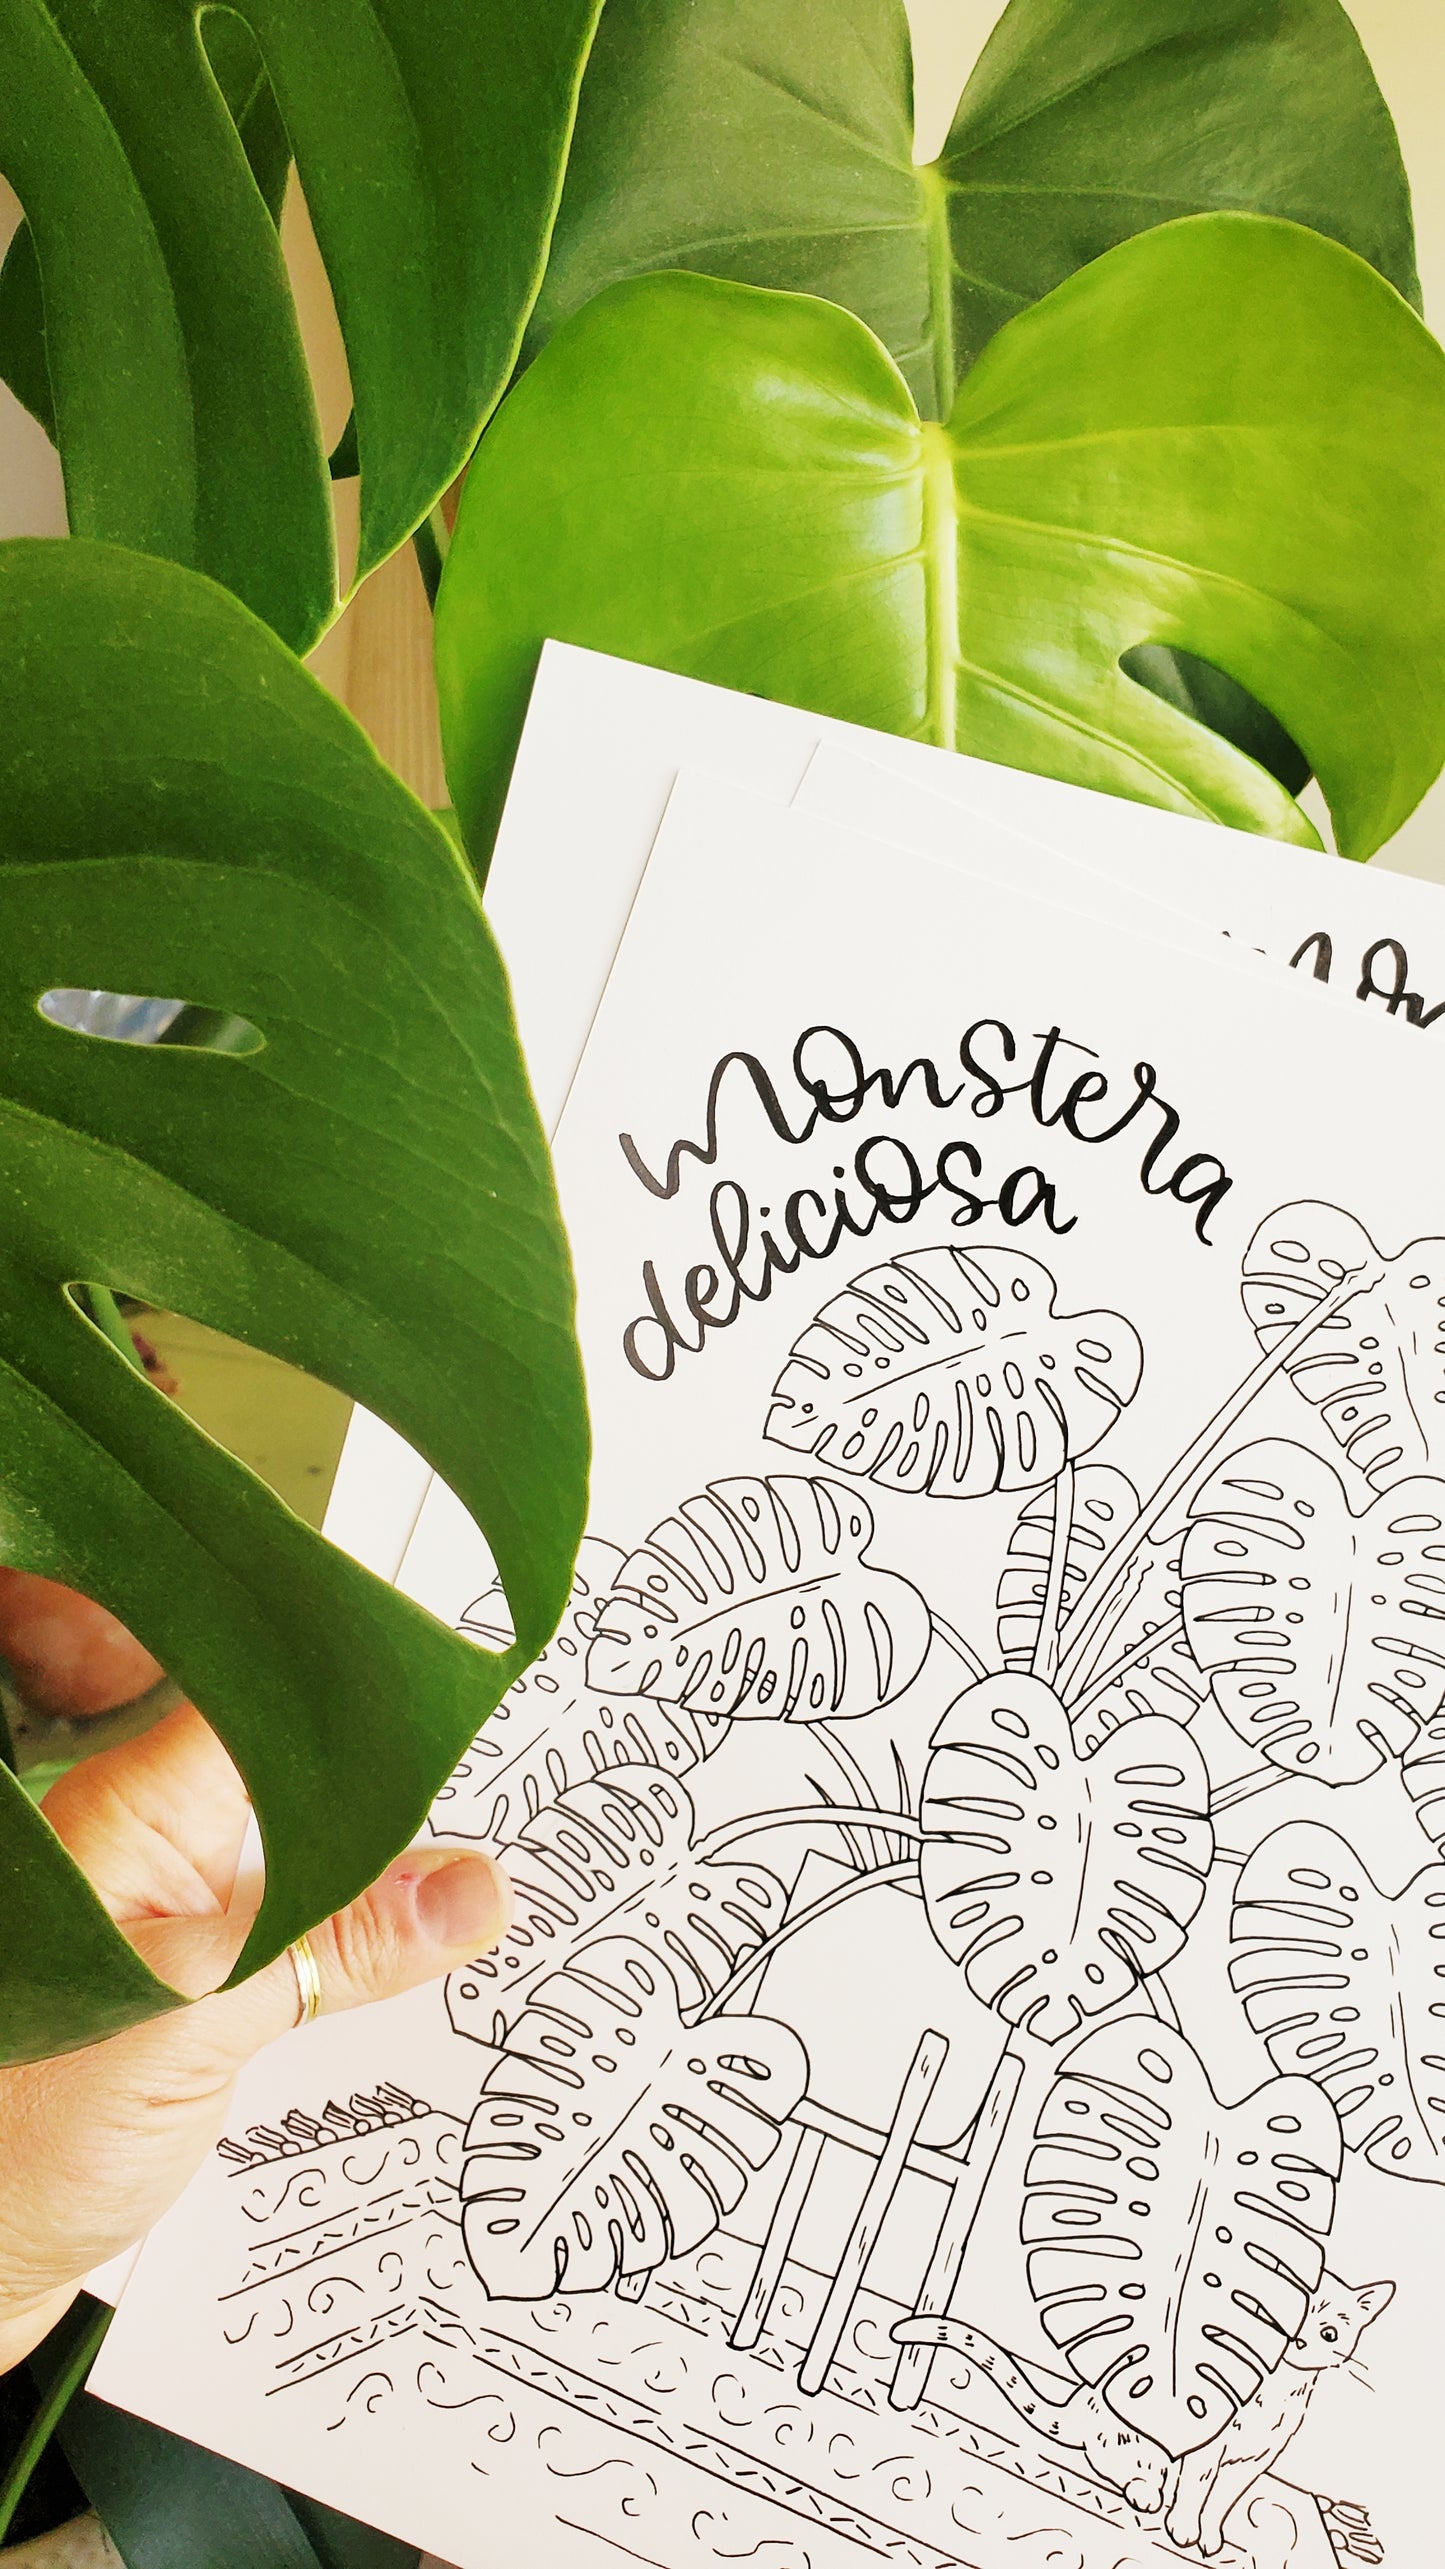 monstera
deliciosa